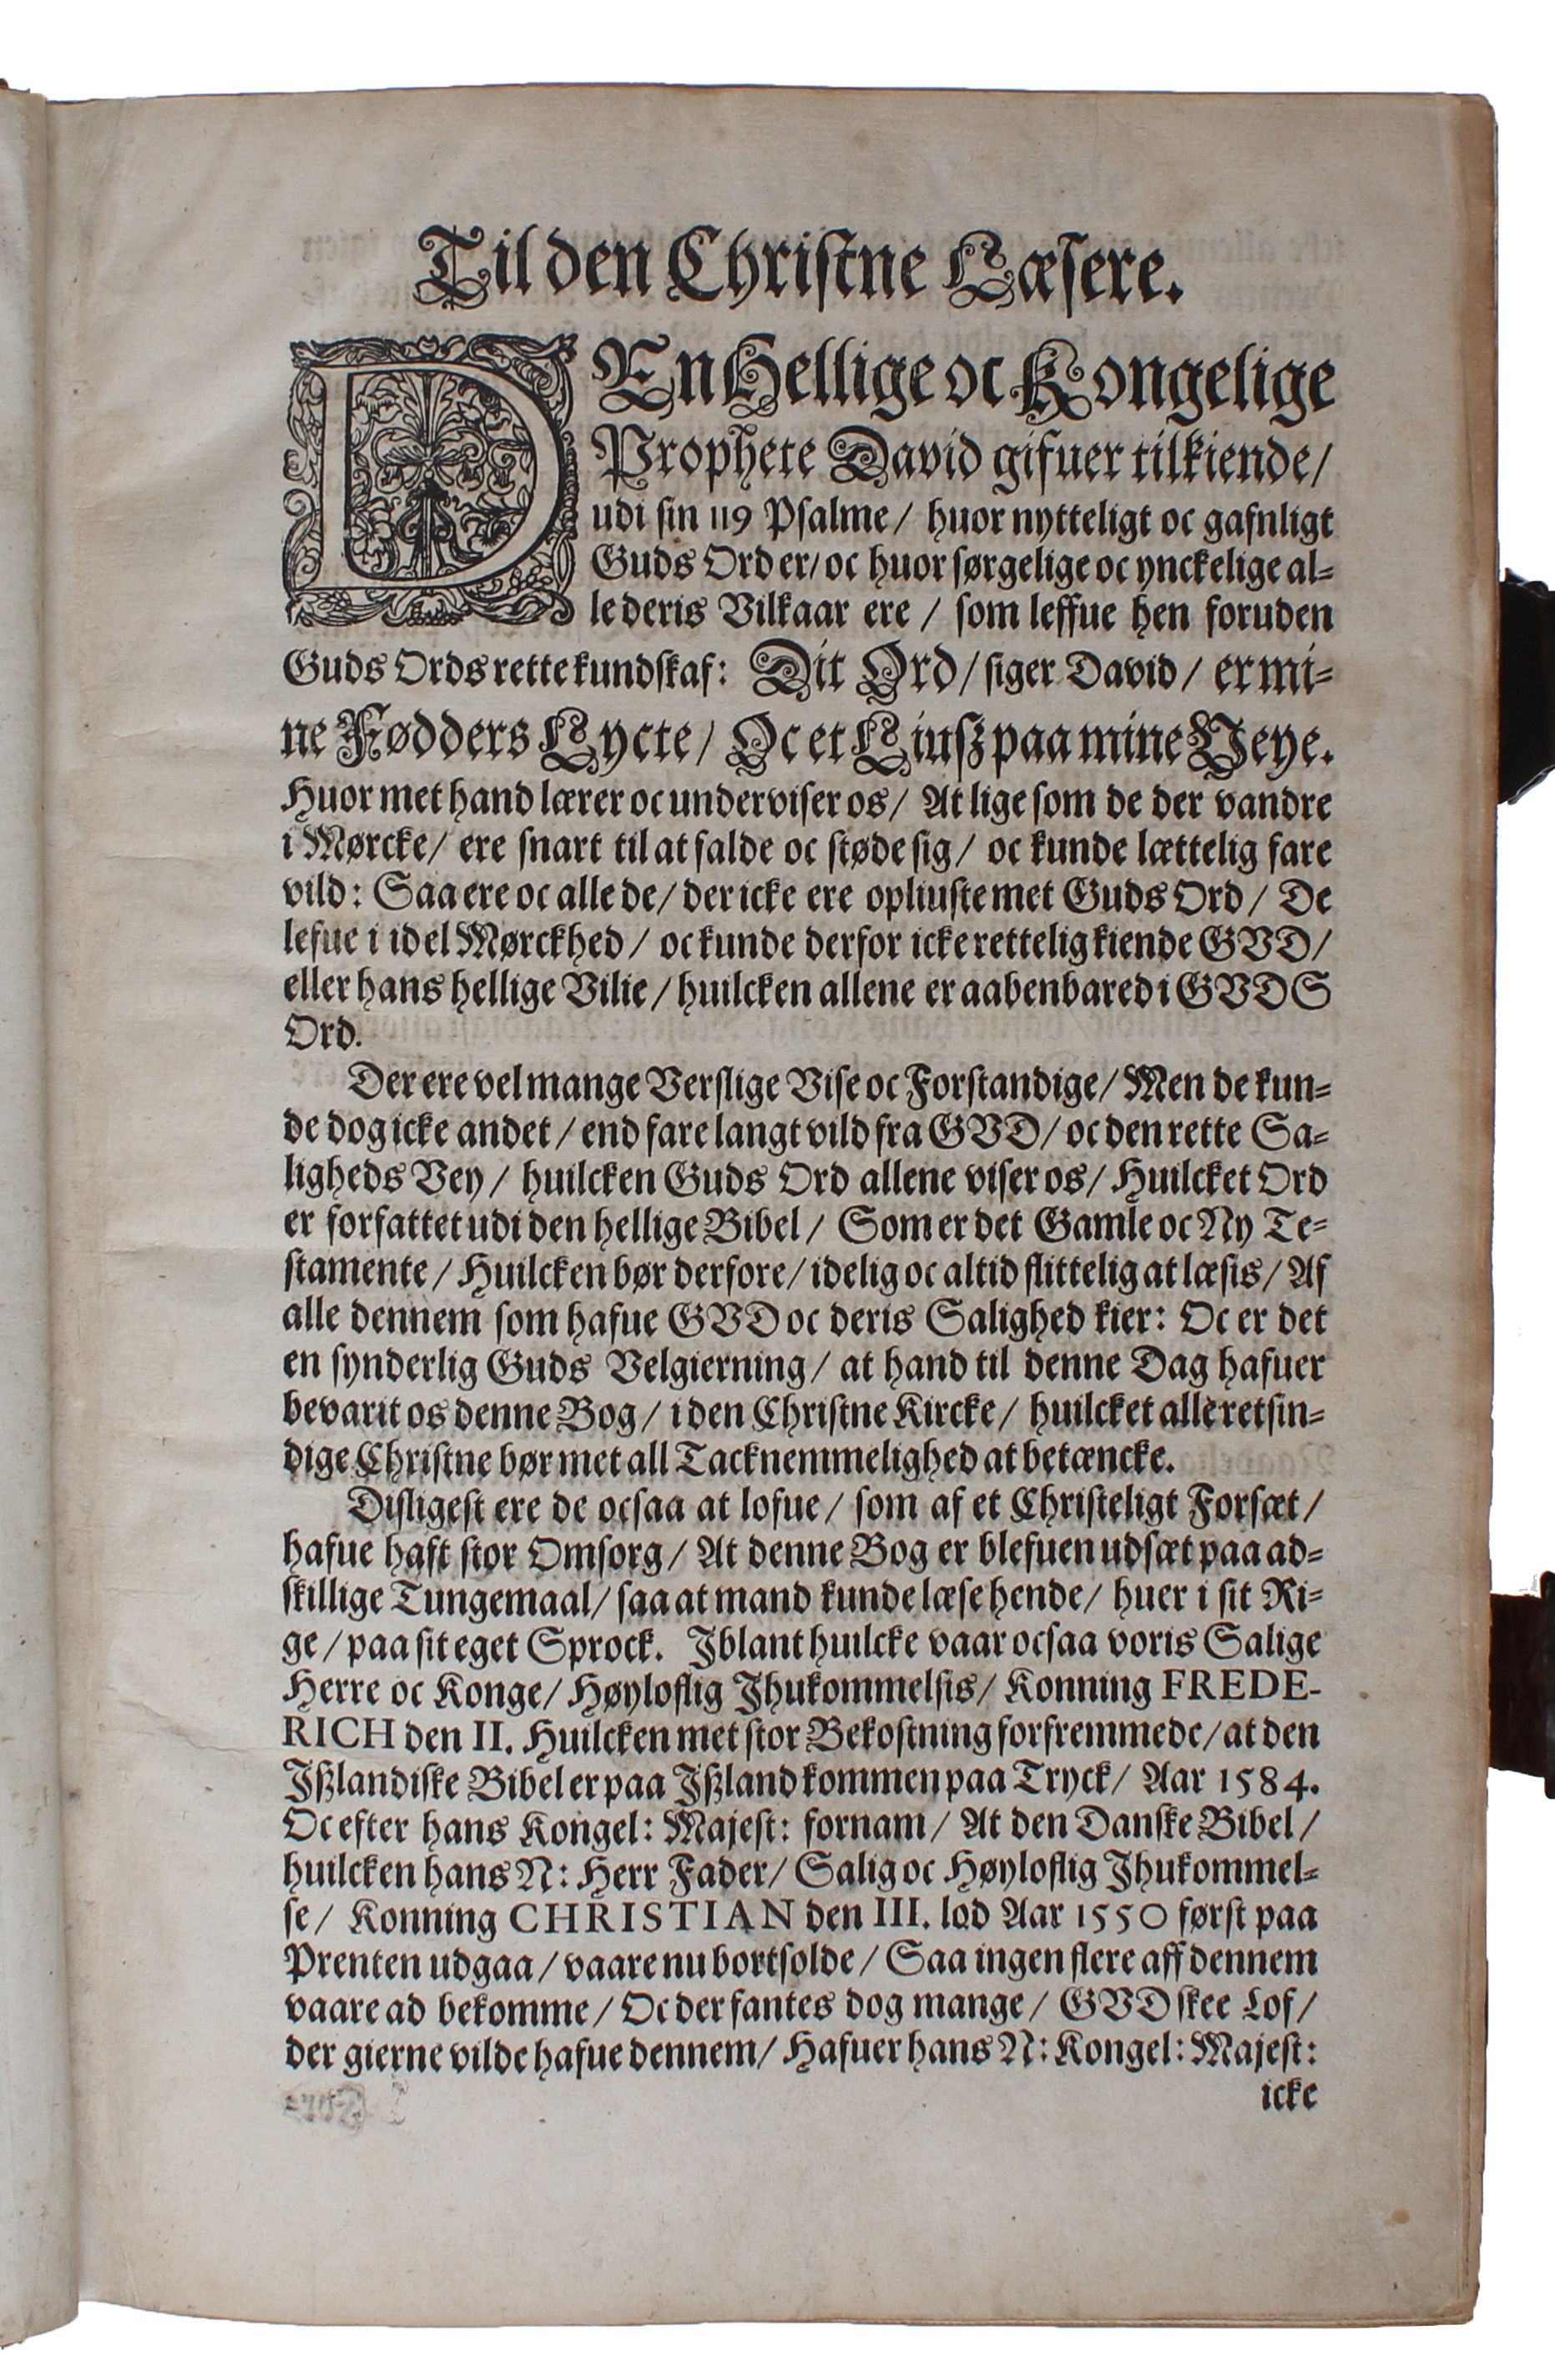 Til den Christne Læsere.
DEn Hellige oc Kongelige
Prophete David gifuer tilkiende/
udi sin 119 Psalme/ huor nytteligt oc gafnligt
Guds Ord er/ oc huor sørgelige oc ynckelige al-
le deris Vilkaar ere / som leffue hen foruden
Guds Ords rette kundskaf: Dit Ord/ siger David / er mi-
ne Fødders Lycte/ Oc et Liusz paa mine Veye.
Huor met hand lærer oc underviser os/ At lige som de der vandre
i Mørcke/ ere snart til at falde oc støde sig/ oc kunde lættelig fare
vild: Saa ere oc alle de/ der icke ere opliuste met Guds Ord/ De
lefue i idel Mørckhed/ oc kunde derfor icke rettelig kiende GVD/
eller hans hellige Vilie/ huilcken allene er aabenbared i GVDS
Ord.
Der ere vel mange Verslige Vise oc Forstandige/ Men de kun-
de dog icke andet / end fare langt vild fra GVD/ oc den rette Sa-
ligheds Vey / huilcken Guds Ord allene viser os/ Huilcket Ord
er forfattet udi den hellige Bibel / Som er det Gamle oc Ny Te-
stamente / Huilcken bør derfore/ idelig oc altid flittelig at læsis/ Af
alle dennem som hafue GVD oc deris Salighed kier: Oc er det
en synderlig Guds Velgierning/ at hand til denne Dag hafuer
bevarit os denne Bog/ i den Christne Kircke/ huilcket alle retsin-
dige Christne bør met all Tacknemmelighed at betæncke.
Disligest ere de ocsaa at lofue/ som af et Christeligt Forsæt/
hafue haft stor Omsorg/ At denne Bog er blefuen udsæt paa ad-
skillige Tungemaal/ saa at mand kunde læse hende/ huer i sit Ri-
ge/ paa sit eget Sprock. Iblant huilcke vaar ocsaa voris Salige
Herre oc Konge/ Høyloflig Ihukommelsis/ Konning FREDE-
RICH den II. Huilcken met stor Bekostning forfremmede/ at den
Ißlandiske Bibel er paa Ißland kommen paa Tryck/ Aar 1584.
Oc efter hans Kongel: Majest: fornam/ At den Danske Bibel/
huilcken hans N: Herr Fader/ Salig oc Høyloflig Ihukommel-
se/ Konning CHRISTIAN den III. lod Aar 1550 først paa
Prenten udgaa/ vaare nu bortsolde/ Saa ingen flere aff dennem
vaare ad bekomme/ Oc der fantes dog mange/ GVD skee Lof/
der gierne vilde hafue dennem/ Hafuer hans N: Kongel: Majest:
icke